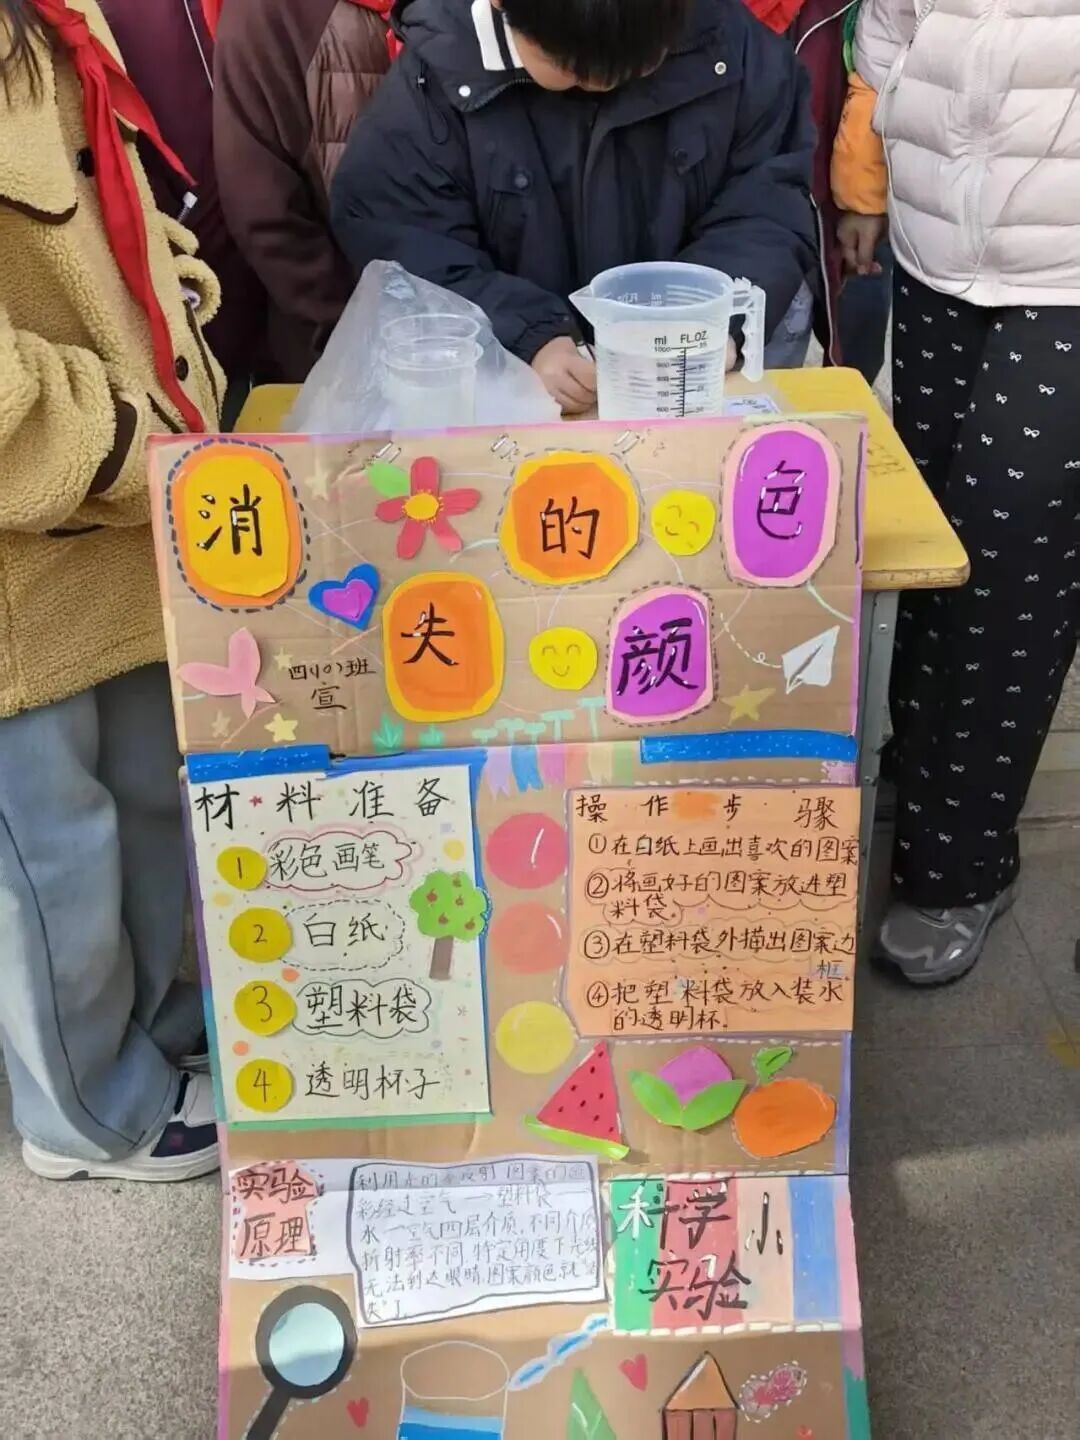 消失的颜色
四(10)班
宣
材料准备
1 彩色画笔
2 白纸
3 塑料袋
4 透明杯子
操作步骤
①在白纸上画出喜欢的图案
②将画好的图案放进塑
料袋。
③在塑料袋外描出图案边
框。
④把塑料袋放入装水
的透明杯。
1
实验
原理
利用水的 反射 图案的
彩经过空气→塑料袋
水 空气四层介质,不同介质
折射率不同,特定角度下光线
无法到达眼睛,图案颜色就"消
失"了
科学小
实验
ml FL.OZ
1000
900
800
700
600